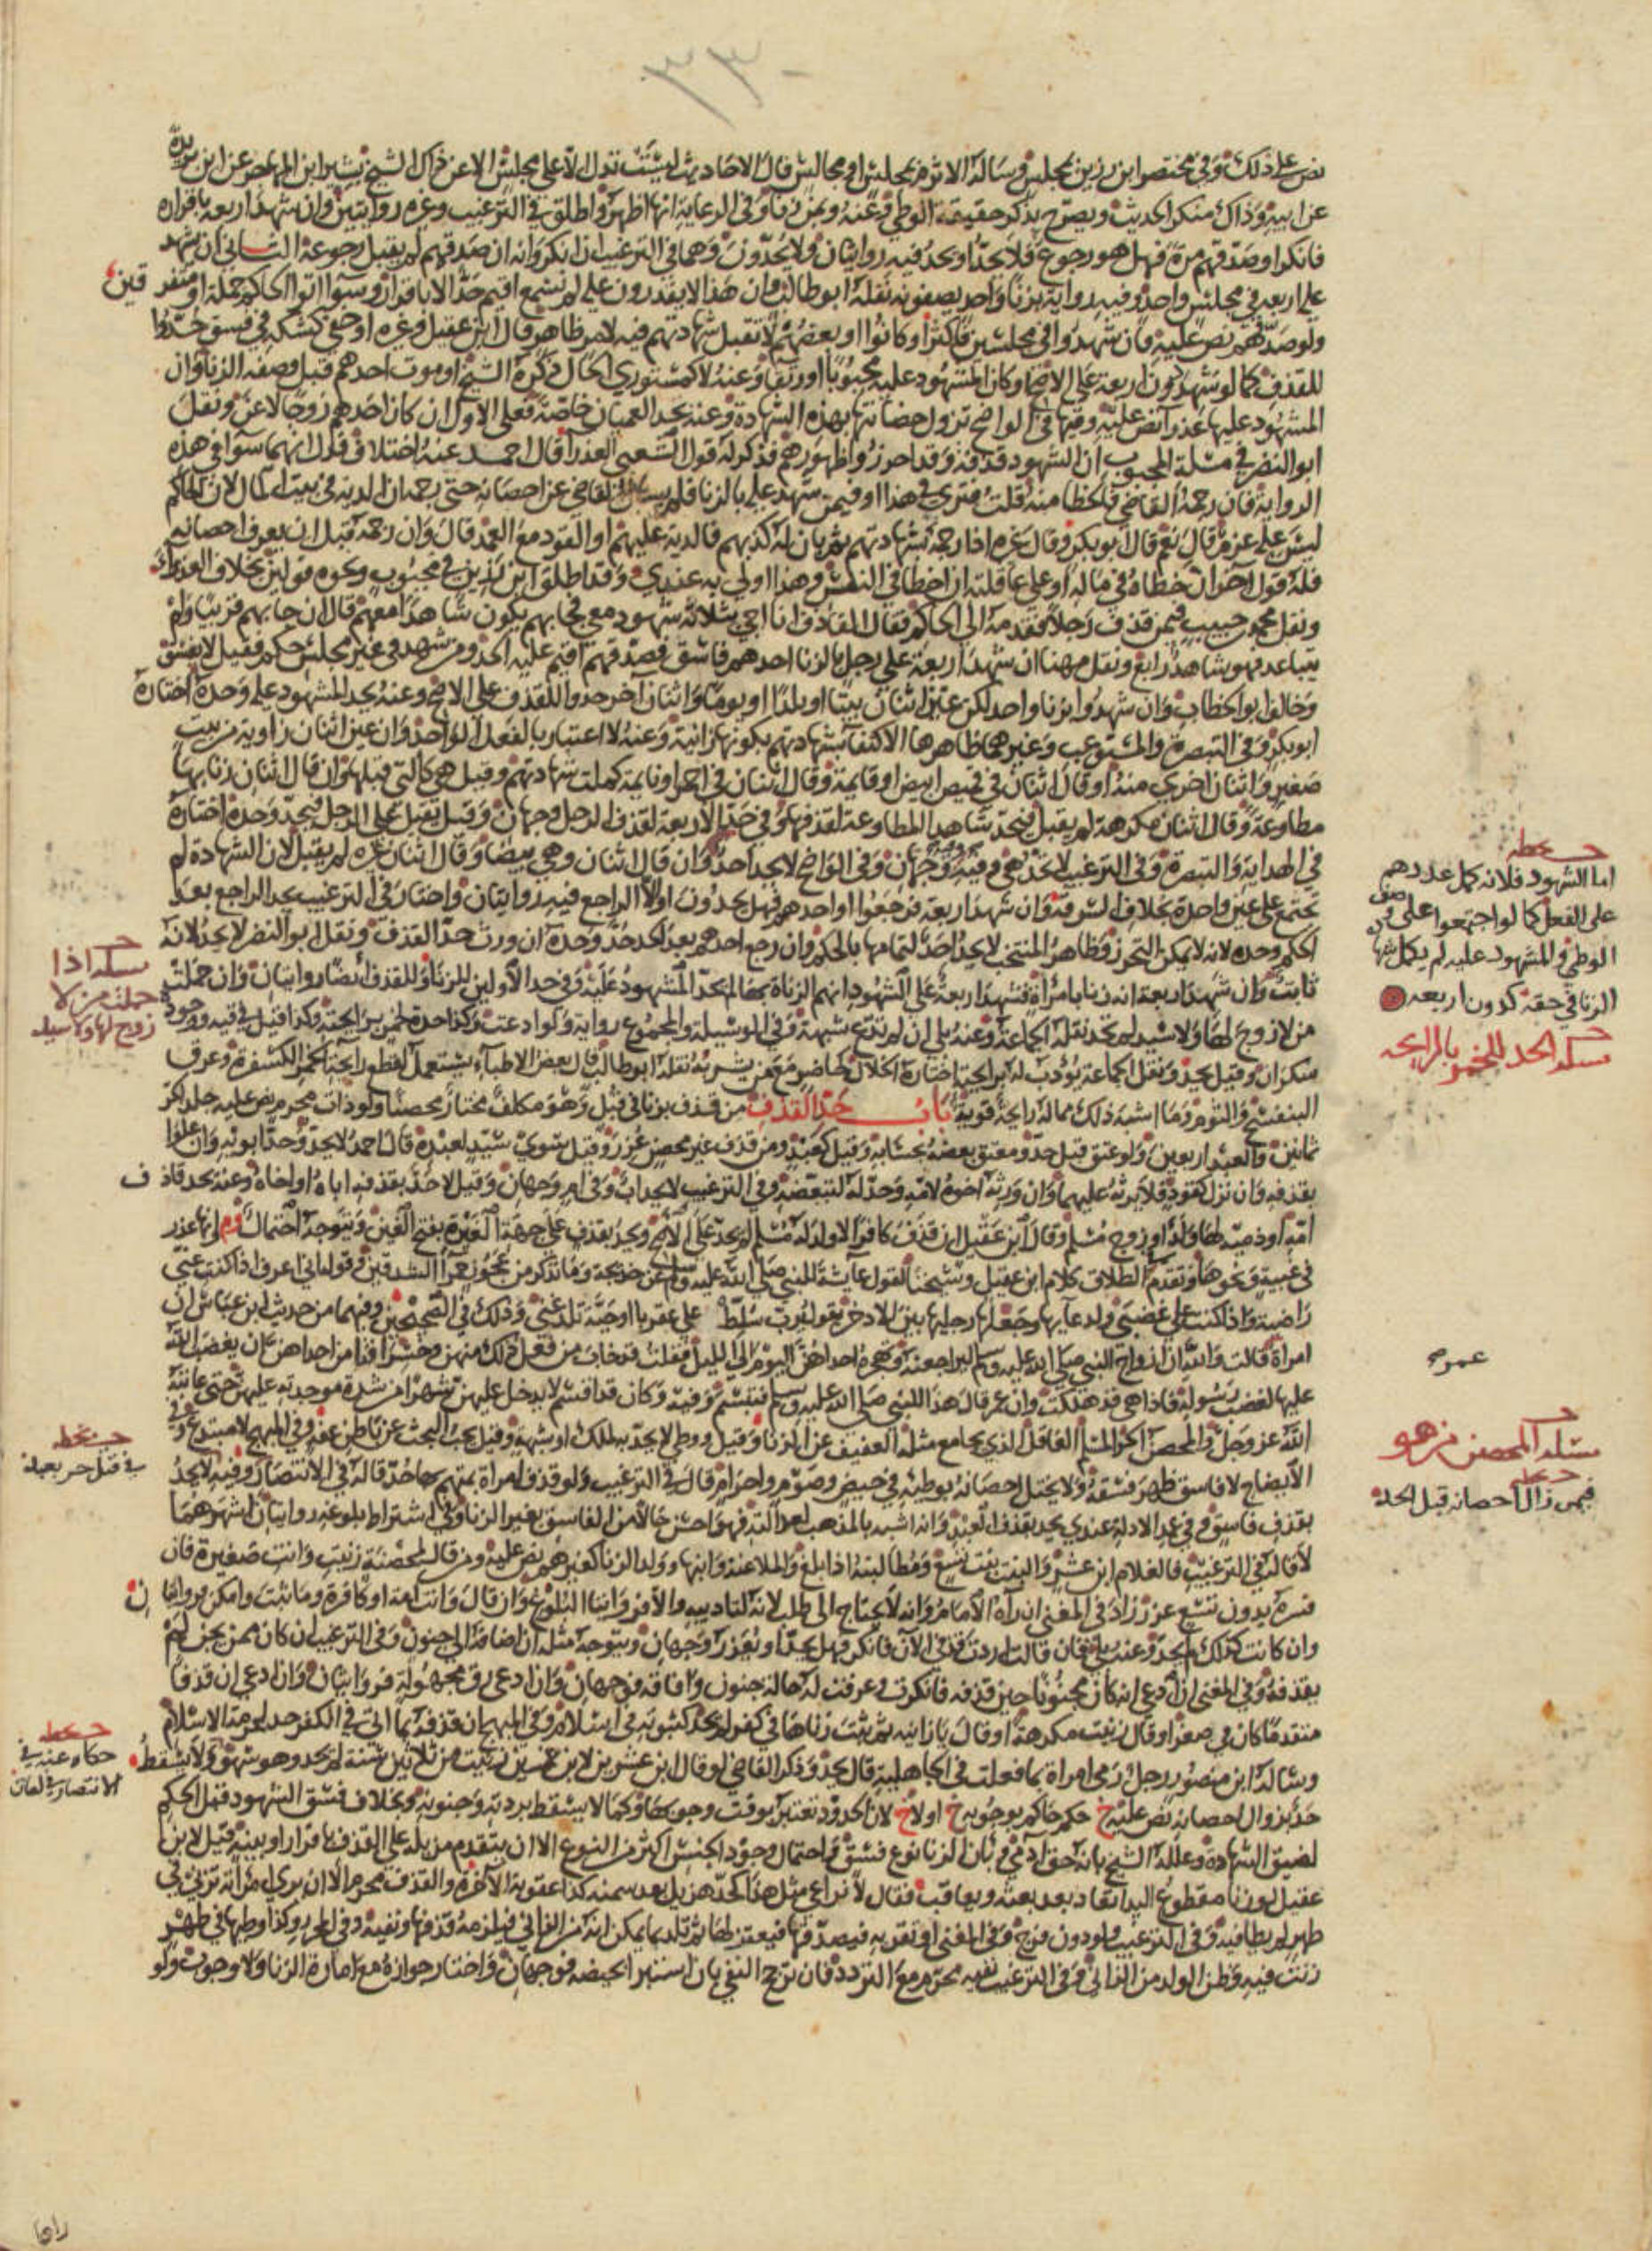 نص على ذلك وفي مختصر ابن رزين بمجلس وسأله الاثرم بمجلس او مجالس قال الاحاديث ليست تدل الا على مجلس الا عن ذاك الشيخ بشير ابن المهاجر عن ابن بريدة
عن ابيه وذاك منكر الحديث ويصرح بذكر حقيقة الوطي وعنه وبمن زنا وفي الرعاية انها اظهر واطلق في الترغيب وغيره روايتين وان شهد اربعة باقراره
فانكر او صدقهم مرة فهل هو رجوع فلا يحد او يحد فيه روايتان ولا يحدون وهما في الترغيب ان انكر وانه ان صدقهم لم يقبل رجوعه الثاني ان يشهد
على اربعة في مجلس واحد وفيه رواية بزنا واحد يصفونه نقله ابو طالب وان هذا لا يقدرون على لم نسمع اقيم حد الا باقرار وسوا اتوا الحاكم جملة او متفرقين
ولو صدقهم نص عليه فان شهدوا في مجلسين فاكثر او كانوا او بعضهم لا تقبل شهادتهم فيه لامر ظاهر قال ابن عقيل وغيره او خفي كشكه في فسق حدوا
للقذف كما لو شهد دون اربعة على الاصح او كان المشهود عليه مجبوبا او رتقا وعنه لا كمستوري الحال ذكره الشيخ او موت احدهم قبل وصفه الزنا وان
المشهود عليها عذرا نص عليه وفيها في الواضح تزول حضانتها بهذه الشهادة وعنه يحد العميان خاصة فعلى الاول ان كان احدهم زوجا لاعن ونقل
ابو النضر في مسلة المجبوب ان الشهود قذفة وقد احرزوا ظهورهم فذكر له قول الشعبي العذرا قال احمد عنه اختلاف فدل انهما سوا في هذه
الرواية فان رجمه القاضي فالخطا منه قلت فترى في هذا او فيمن شهد عليه بالزنا فلم يسال القاضي عن احصانه حتى رجمه ان الدية في بيت المال لان الحاكم
ليس عليه غرم قال نعم قال ابو بكر وقال غيره اذا رجمه بشهادتهم ثم بان له كذبهم فالدية عليهم او القود مع العمد قال وان رجمه قبل ان يعرف احصانه
فله قول اخر ان خطاه في ماله او على عاقلته ان اخطا في النفس وهذا اولى به عندي وقد اطلق ابن رزين في مجبوب ونحوه قولين بخلاف العذرا
ونقل محمد بن حبيب فيمن قذف رجلا فقدمه الى الحاكم فقال القاذف انا اجي بثلاثة شهود معي فجا بهم يكون شاهدا معهم قال ان جا بهم قريبا ولم
يتباعد فهو شاهد رابع ونقل مهنا ان شهد اربعة على رجل بالزنا احدهم فاسق فصدقهم اقيم عليه الحد ومن شهد في غير مجلس حكم فقيل لا يفسق
وخالف ابو الخطاب وان شهدوا بزنا واحد لكن عين اثنان بيتا او بلدا او يوما واثنان اخر حدوا للقذف على الاصح وعنه يحد المشهود عليه وحده اختاره
ابو بكر وفي التبصرة والمستوعب وغيرهما ظاهرها الاكتفا بشهادتهم بكونها زانية وعنه لا اعتبار بالفعل الواحد وان عين اثنان زاوية من بيت
صغير واثنان اخرى منه او قال اثنان في قميص ابيض او قايمة وقال اثنان في احمر او نايمة كملت شهادتهم وقيل هي كالتي قبلها وان قال اثنان زنا بها
مطاوعة وقال اثنان مكرهة لم يقبل فيحد شاهدا المطاوعة لقذفها وفي حد الاربعة لقذف الرجل وجهان وقيل تقبل على الرجل فيحد وحده اختاره
في الهداية والتبصرة وفي الترغيب لا تحد هي وفيه وجهان وفي الواضح لا يحد احد وان قال اثنان وهي بيضا وقال اثنان غيره لم يقبل لان الشهادة لم
تجتمع على عين واحدة بخلاف السرقة وان شهد اربعة فرجعوا او احدهم فهل يحدون اولا الراجع فيه روايتان واختار في الترغيب يحد الراجع بعد
الحكم وحده لانه لا يمكن التحرز وظاهر المنتخب لا يحد احد لتمامها بالحكم وان رجع احدهم بعد الحد حد وحده ان ورث حد القذف ونقل ابو النضر لا يحد لانه
ثابت وان شهد اربعة انه زنا بامراة فشهد اربعة على الشهود انهم الزناة بها لم يحد المشهود عليه وفي حد الاولين للزنا وللقذف ايضا روايتان وان حملت
من لا زوج لها ولا سيد لم تحد نقله الجماعة وعنه بلى ان لم تدع شبهة وفي الوسيلة والمجموع رواية ولو ادعت وكذا حده لخمر برايحة وكذا قيل في قيه ووجود
سكران وقيل يحد ونقل الجماعة يؤدب له برايحة اختاره الخلال كحاضر مع من يشربه نقله ابو طالب قال بعض الاطباء يستعمل لقطع رايحة الخمر الكسفرة وعرق
البنفسج والثوم وما اشبه ذلك مما له رايحة قوية باب حد القذف من قذف بزنا في قبل وهو مكلف مختار محصنا ولو ذات محرم نص عليه جلد الحر
ثمانين والعبد اربعين ولو عتق قبل حد ومعتق بعضه بحسابه وقيل كعبد ومن قذف غير محصن عزر وقيل سوى سيد لعبده قال احمد لا يحد وحد ابويه وان علوا
بقذفه وان نزل كقود فلا يرثه عليهما وان ورثه اخوه لامه وحد له لتبعضه وفي الترغيب لا يحد اب وفي ام وجهان وقيل لا حد بقذفه اباه او اخاه وعنه يحد قاذف
امة او ذمية لها ولد او زوج مسلم وقال ابن عقيل ان قذف كافرا لا ولد له مسلم لم يحد على الاصح ويحد بقذف على جهة الغيرة بفتح الغين ويتوجه احتمال وانها عذر
في غيبة ونحوها وتقدم في الطلاق كلام ابن عقيل وشيخنا لقول عايشة للنبي صلى الله عليه وسلم عن خديجة وما تذكر من عجوز حمرا الشدقين وقوله اني اعرف اذا كنت عني
راضية واذا كنت علي غضبى ولدعايها وجعلها رجليها بين الاذخر تقول يا رب سلط علي عقربا او حية تلدغني وذلك في الصحيحين وفيهما من حديث ابن عباس ان
امراة قالت والله ان ازواج النبي صلى الله عليه وسلم ليراجعنه وتهجره احداهن اليوم الى الليل فقلت قد خاب من فعل ذلك منهن وخسر افتامن احداهن ان يغضب الله
عليها لغضب رسوله فاذا هي قد هلكت وان عمر قال هذا للنبي صلى الله عليه وسلم فتبسم وفيه وكان قد اقسم لا يدخل عليهن شهرا من شدة موجدته عليهن حتى عاتبه
الله عز وجل والمحصن الحر المسلم العاقل الذي يجامع مثله العفيف عن الزنا وقيل ووطي لا يحد به لملك او شبهة وقيل يجب البحث عن باطن عفة وفي المبهج لا مبتدع وفي
الايضاح لا فاسق ظهر فسقه ولا يختل احصانه بوطيه في حيض وصوم واحرام قال في الترغيب ولو قذف امراة يتهم بها حد قاله في الانتصار وفيه لا يحد
بقذف فاسق وفي عمد الادلة عندي يحد بقذف العبد وانه اشبه بالمذهب لعدالته فهو احسن حالا من الفاسق بغير الزنا وفي اشتراط بلوغه روايتان اشهرهما
لا قاله في الترغيب فالغلام ابن عشر والبنت بنت تسع ومطالبته اذا بلغ والملاعنة وابنها وولد الزنا كغيرهم نص عليه ومن قال لمحصنة زنيت وانت صغيرة فان
فسره بدون تسع عزر زاد في المغني ان رآه الامام وانه لا يحتاج الى طلب لانه لتاديبه والا فروايتا البلوغ وان قال وانت امة او كافرة وما ثبت وامكن فروايتان
وان كانت كذلك لم يحد وعنه بلى فان قالت اردت قذفي الان فانكر فهل يحد او يعزر وجهان ويتوجه مثله ان اضافه الى جنون وفي الترغيب ان كان ممن يجن لم
يقذفه وفي المغني ان ادعى انه كان مجنونا حين قذفه فانكرت وعرفت له حالة جنون وافاقة فوجهان وان ادعى رق مجهولة فروايتان وان ادعى ان قذفا
متقدما كان في صغر او قال زنيت مكرهة او قال يا زانية ثم ثبت زناها في كفر لم يحد كثبوته في اسلام وفي المبهج ان قذفه بما اتى في الكفر حد لحرمة الاسلام
وسأله ابن منصور رجل رمى امراة بما فعلت في الجاهلية قال يحد وذكر القاضي لو قال ابن عشرين لابن خمسين زنيت من ثلاثين سنة لم يحد وهو سهو ولا يسقط
حد بزوال احصانه نص عليه خ حكم حاكم بوجوبه خ اولا خ لان الحدود تعتبر بوقت وجوبها وكما لا يسقط بردته وجنونه وبخلاف فسق الشهود قبل الحكم
لضيق الشهادة وعلله الشيخ بانه حق ادمي وبان الزنا نوع فسق واحتمال وجود الجنس اكثر من النوع الا ان يتقدم مزيله على القذف باقرار او بينة قيل لابن
عقيل لو زنا مقطوع اليد انقاد بعد بعثه ويعاقب فقال لا نراعي مثل هذا كحد هزيل بعد سمنه كذا عقوبة الاخرة والقذف محرم الا ان يرى امراته تزني في
طهر لم يطا فيه وفي الترغيب ولو دون فرج وفي المغني او تقر به فيصدقها فيعتزلها ثم تلد ما يمكن انه من الزاني فيلزمه قذفها ونفيه وفي المحرر وكذا لو وطيها في طهر
زنت فيه وظن الولد من الزاني وفي الترغيب نفيه محرم مع التردد فان ترجح النفي بان استبرا بحيضة فوجهان واختار جوازه مع امارة الزنا ولا وجوب ولو
حـ بخطه
اما الشهود فلانه كمل عددهم
على الفعل كما لو اجتمعوا على وصف
الوطي والمشهود عليه لم يكمل شهادة
الزنا في حقه كدون اربعه
مسلة الحد للخمر بالرايحه
مسلة اذا
حملت من لا
زوج لها ولا سيد
عمر
مسلة المحصن من هو
فيمن زال احصانه قبل الحد
حـ بخطه
حـ بخطه
حكاه عنه في
الانتصار في لعان